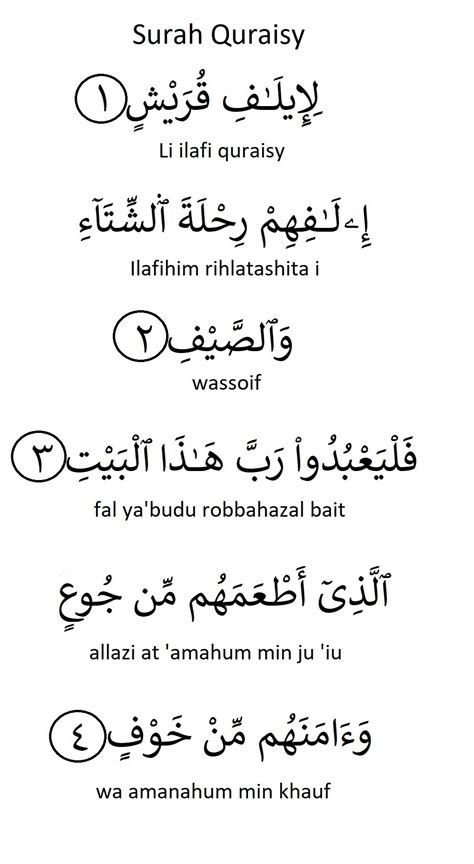 Surah Quraisy
لِإِيلَـٰفِ قُرَيْشٍ ١
Li ilafi quraisy
إِۦلَـٰفِهِمْ رِحْلَةَ ٱلشِّتَآءِ
Ilafihim rihlatashita i
وَٱلصَّيْفِ ٢
wassoif
فَلْيَعْبُدُوا۟ رَبَّ هَـٰذَا ٱلْبَيْتِ ٣
fal ya'budu robbahazal bait
ٱلَّذِىٓ أَطْعَمَهُم مِّن جُوعٍ
allazi at 'amahum min ju 'iu
وَءَامَنَهُم مِّنْ خَوْفٍ ٤
wa amanahum min khauf